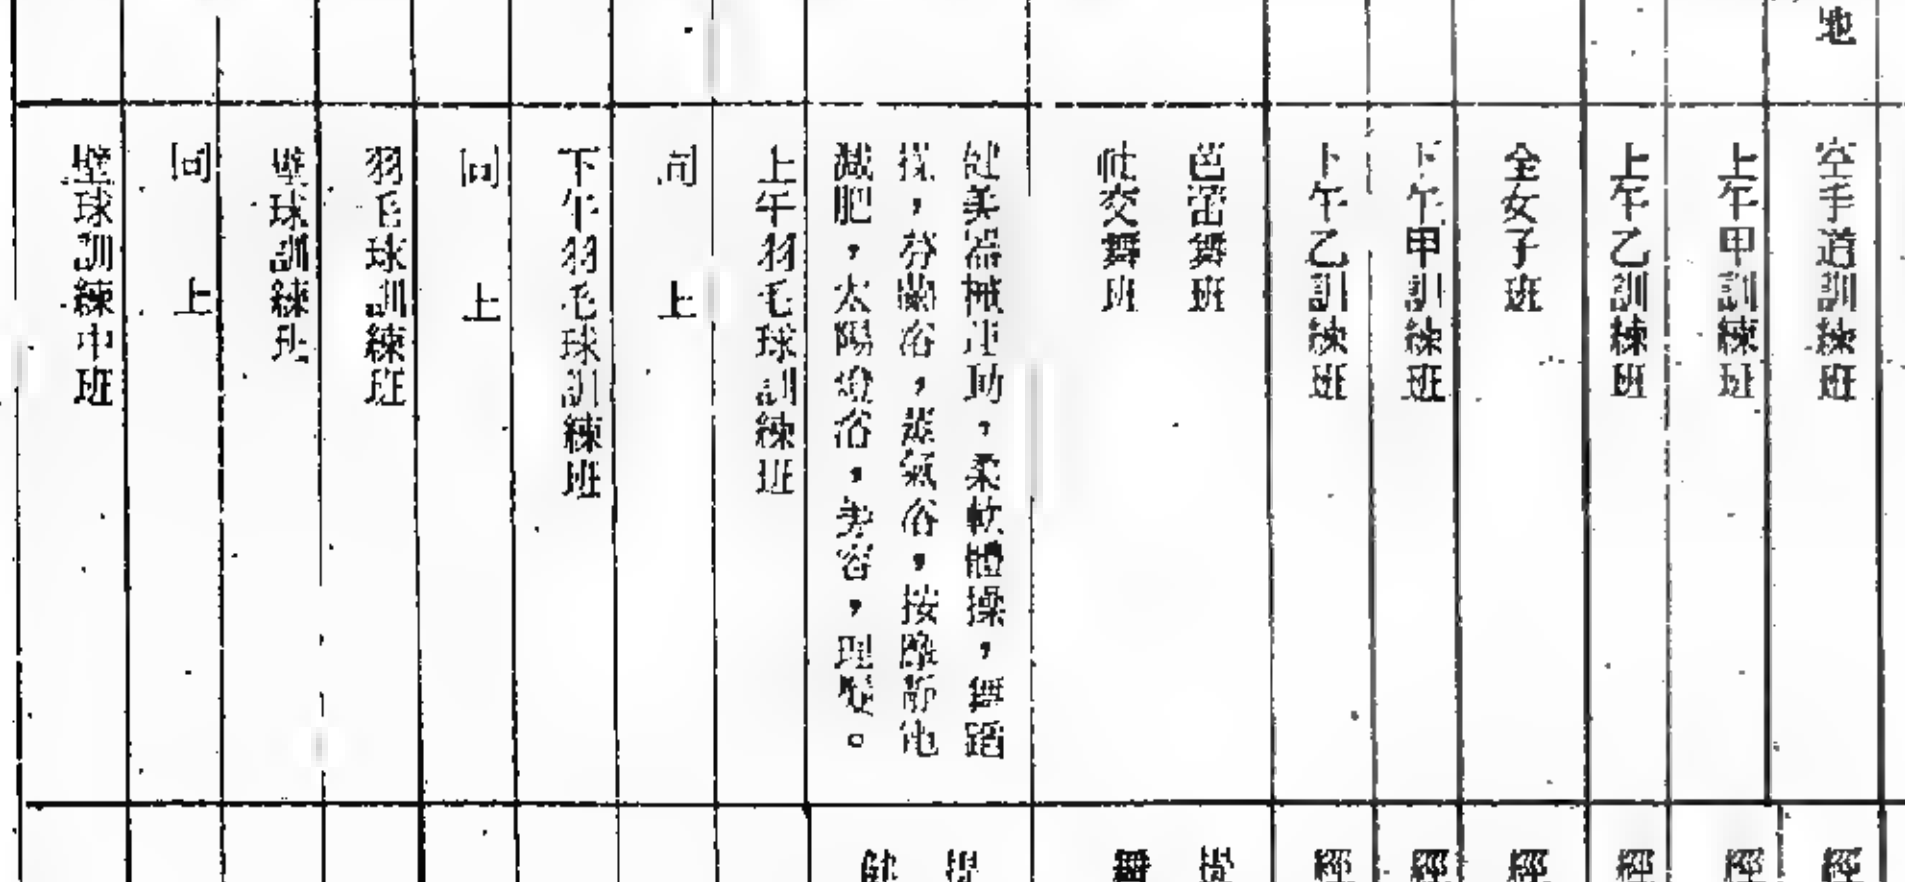 地
空手道訓練班
上午甲訓練班
上午乙訓練班
全女子班
下午甲訓練班
下午乙訓練班
芭蕾舞班
社交舞班
健美器械運動，柔軟體操，舞蹈
操，芬蘭浴，蒸氣浴，按摩靜電
減肥，太陽燈浴，美容，理髮。
上午羽毛球訓練班
同上
下午羽毛球訓練班
同上
羽毛球訓練班
壁球訓練班
同上
壁球訓練中班